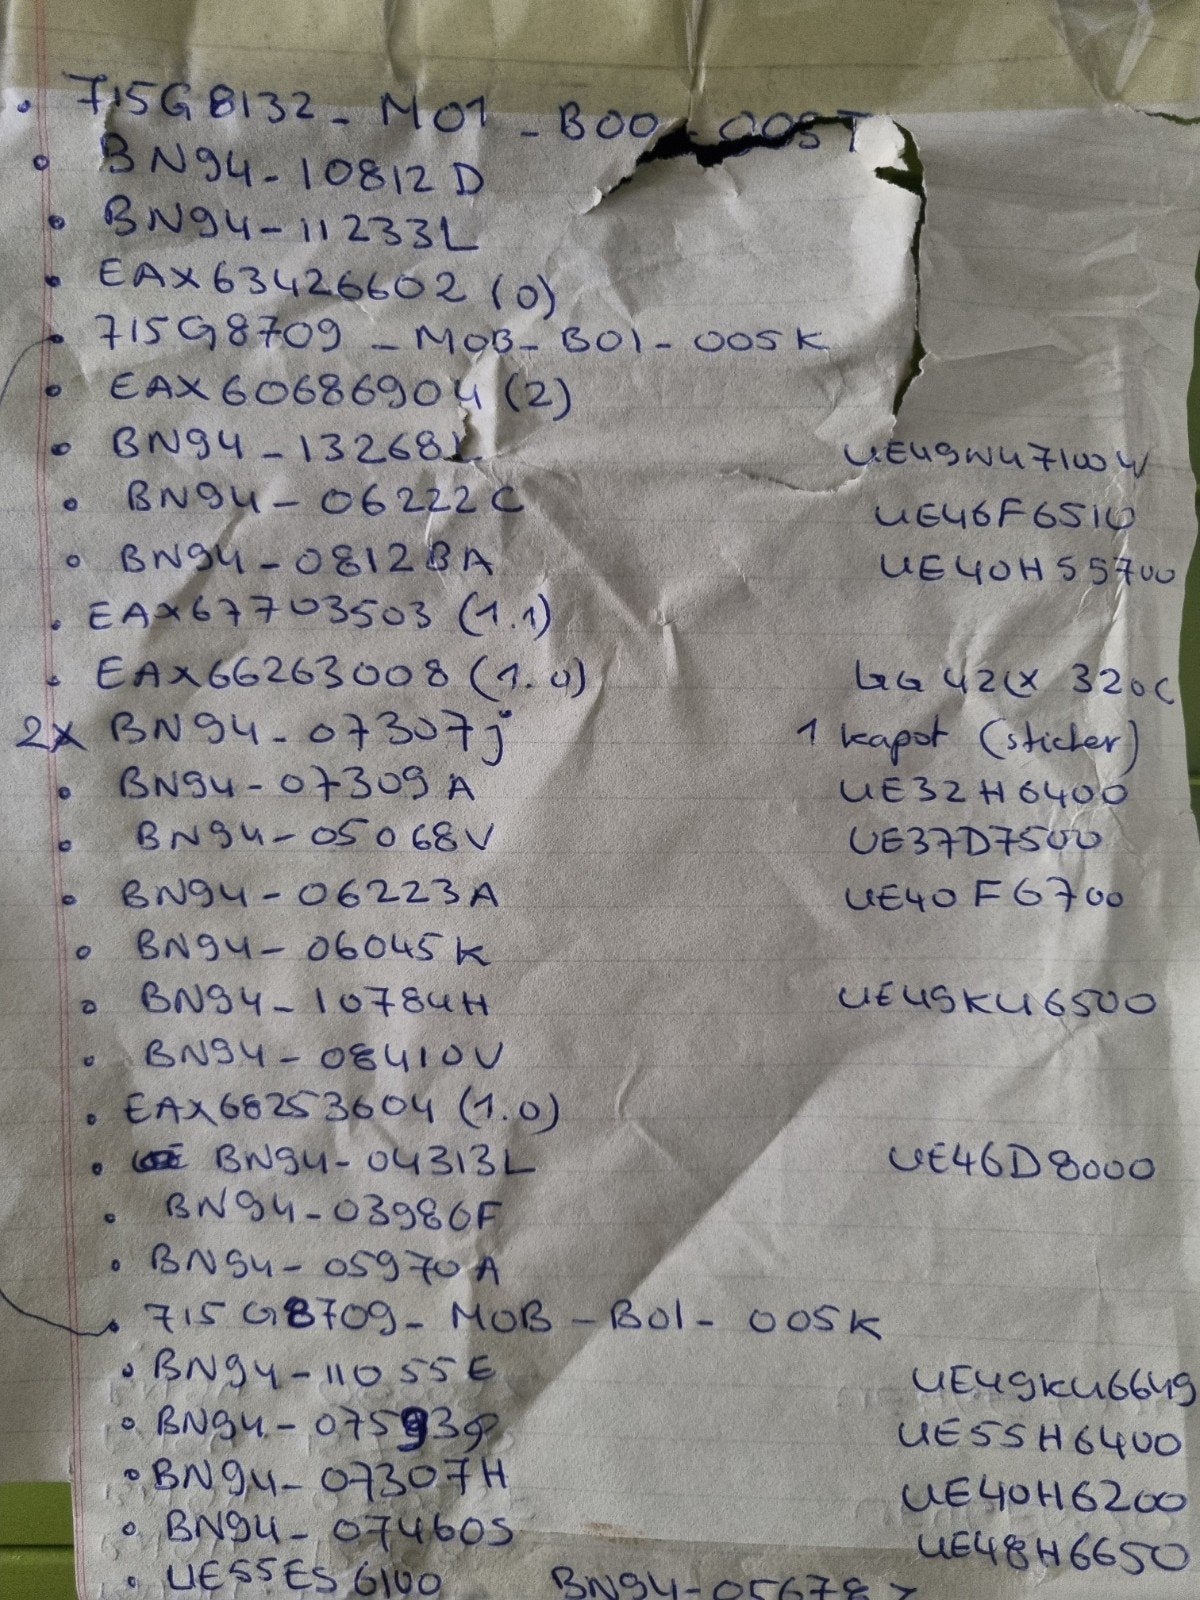 715G8132 - M01 - B00 - 005T
BN94-10812D
BN94-11233L
EAX63426602 (0)
715G8709 - M0B - B01 - 005K
EAX60686904 (2)
BN94-13268L UE49NU7100W
BN94-06222C UE46F6510
BN94-0812BA UE40H55700
EAX67703503 (1.1)
EAX66263008 (1.0) 42LX 320C
2x BN94-07307j 1 kapot (sticker)
BN94-07309A UE32H6400
BN94-05068V UE37D7500
BN94-06223A UE40F6700
BN94-06045K
BN94-10784H UE49KU6500
BN94-08410V
EAX68253604 (1.0)
BN94-04313L UE46D8000
BN94-03986F
BN94-05970A
715G8709 - M0B - B01 - 005K
BN94-11055E UE49KU6649
BN94-07593P UE55H6400
BN94-07307H UE40H6200
BN94-07460S UE48H6650
UE55ES6100